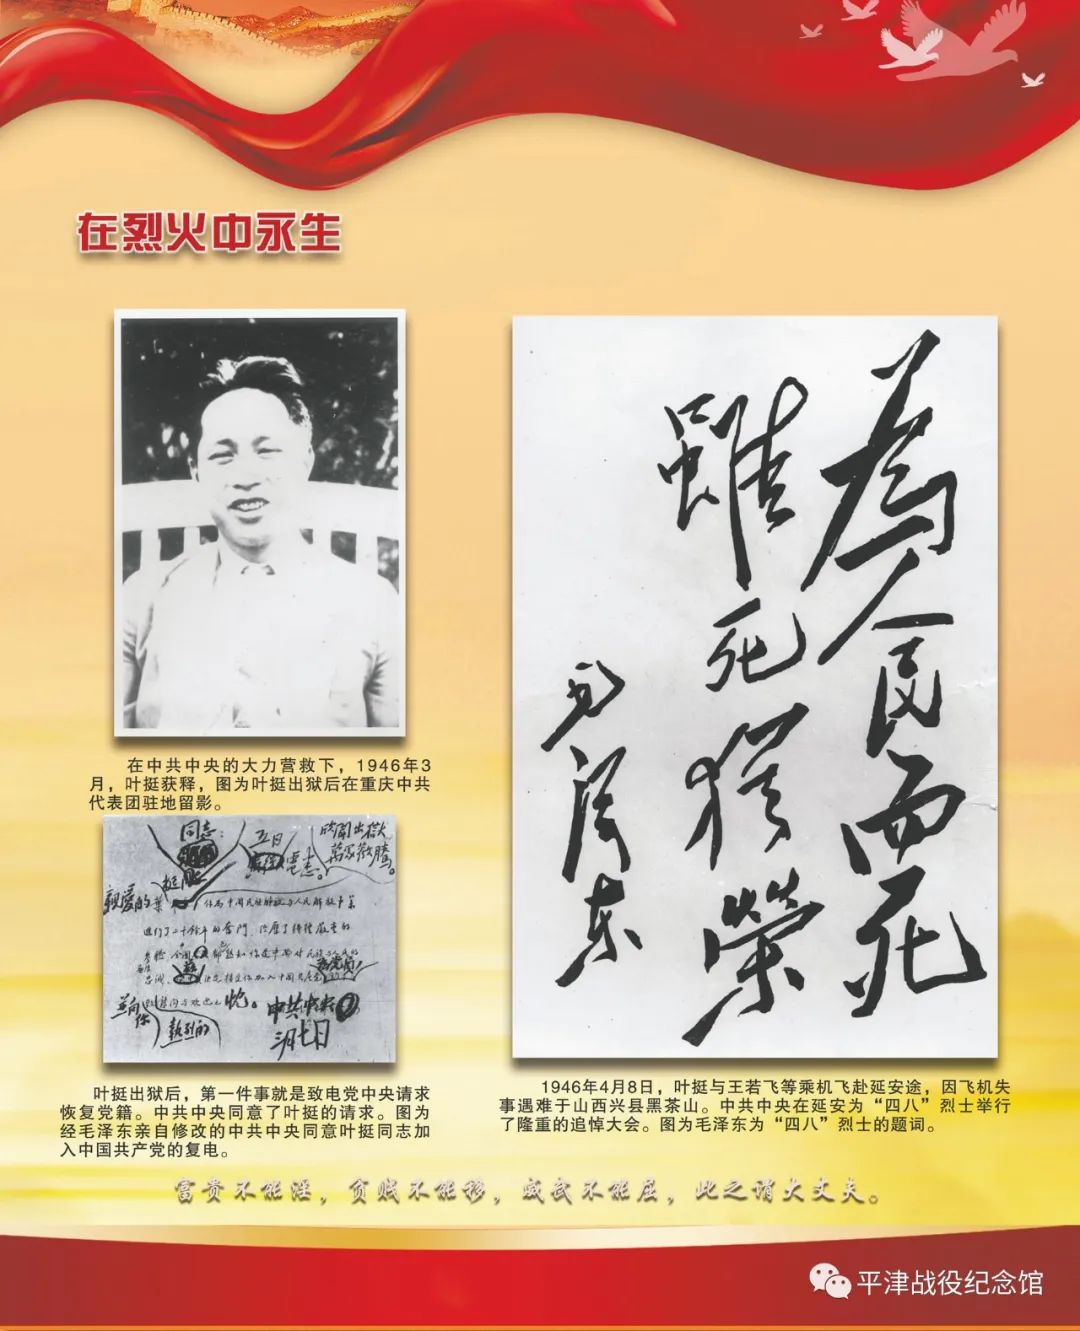 在烈火中永生
在中共中央的大力营救下，1946年3
月，叶挺获释，图为叶挺出狱后在重庆中共
代表团驻地留影。
同志：
五日
電悉。
欣聞出獄
萬眾歡騰。
親愛的葉
挺
中共中央
三月七日
熱烈的
叶挺出狱后，第一件事就是致电党中央请求
恢复党籍。中共中央同意了叶挺的请求。图为
经毛泽东亲自修改的中共中央同意叶挺同志加
入中国共产党的复电。
為人民而死
雖死猶榮
毛澤东
1946年4月8日，叶挺与王若飞等乘机飞赴延安途，因飞机失
事遇难于山西兴县黑茶山。中共中央在延安为“四八”烈士举行
了隆重的追悼大会。图为毛泽东为“四八”烈士的题词。
富贵不能淫，贫贱不能移，威武不能屈，此之谓大丈夫。
平津战役纪念馆